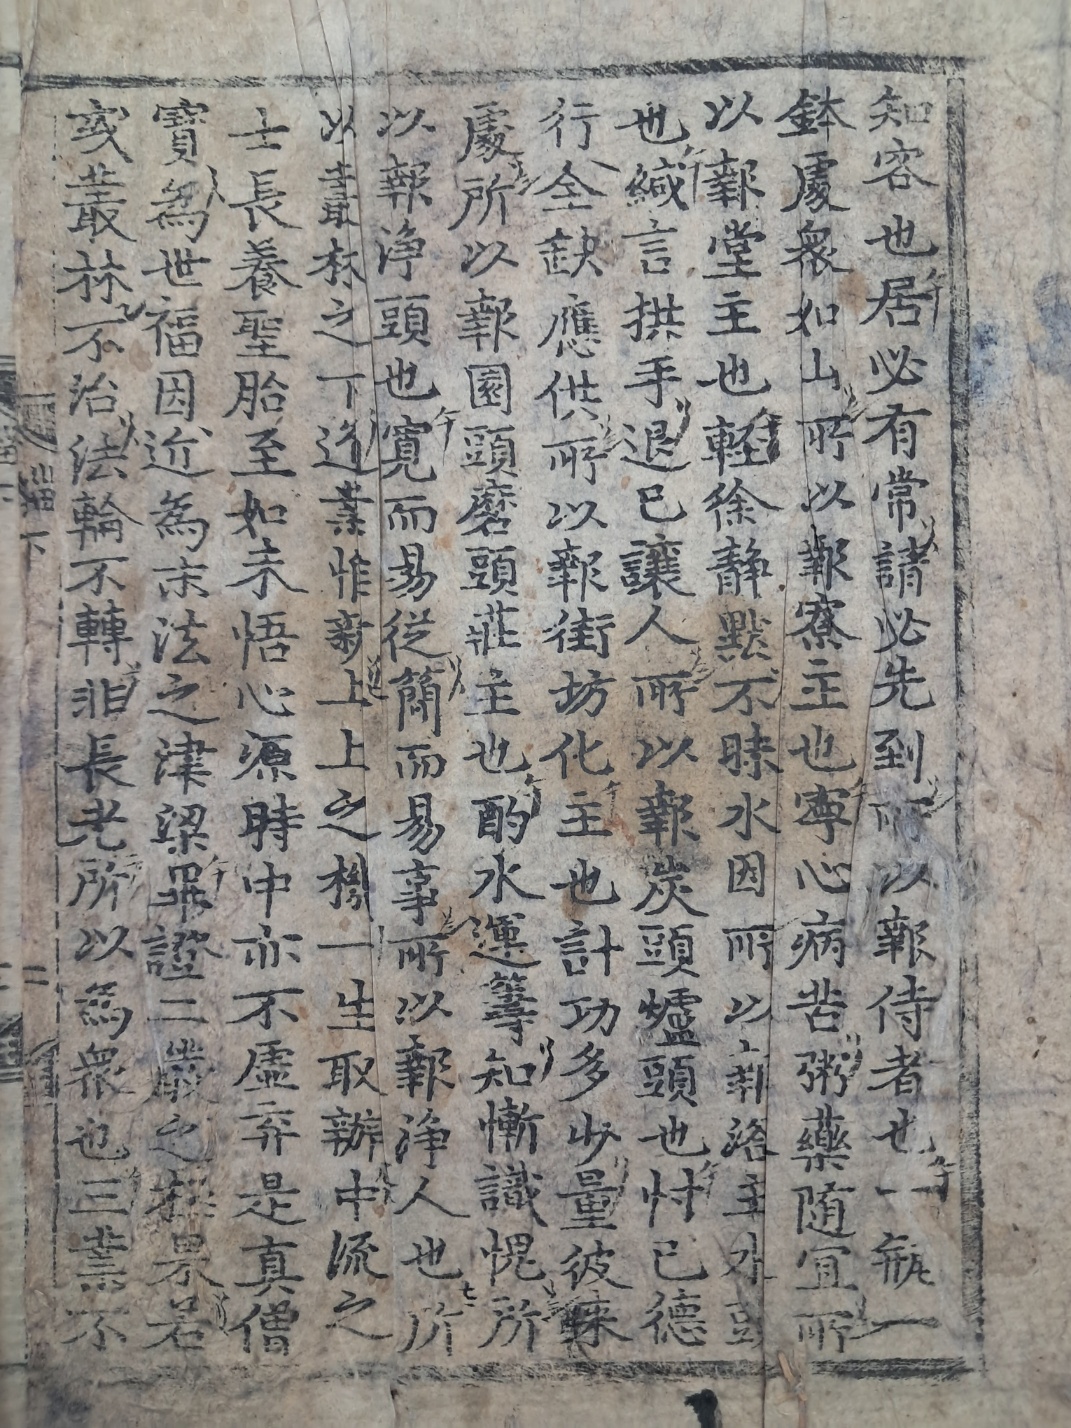 知容也居必有常請必先到所以報侍者也一瓶一
鉢處衆如山所以報寮主也寧心病苦粥藥随宜所
以報堂主也輕徐靜默不昧水因所以報浴主水頭
也緘言拱手退已讓人所以報炭頭爐頭也忖已德
行全缺應供所以報街坊化主也計功多少量彼來
處所以報園頭磨頭莊主也酌水運籌知慚識愧所
以報净頭也寬而易從簡而易事所以報净人也所
以叢林之下道業惟新上上之機一生取辦中流之
士長養聖胎至如未悟心源時中亦不虛弃是真僧
寶爲世福因近爲末法之津梁畢證二嚴之極果若
或叢林不治法輪不轉非長老所以爲衆也三業不